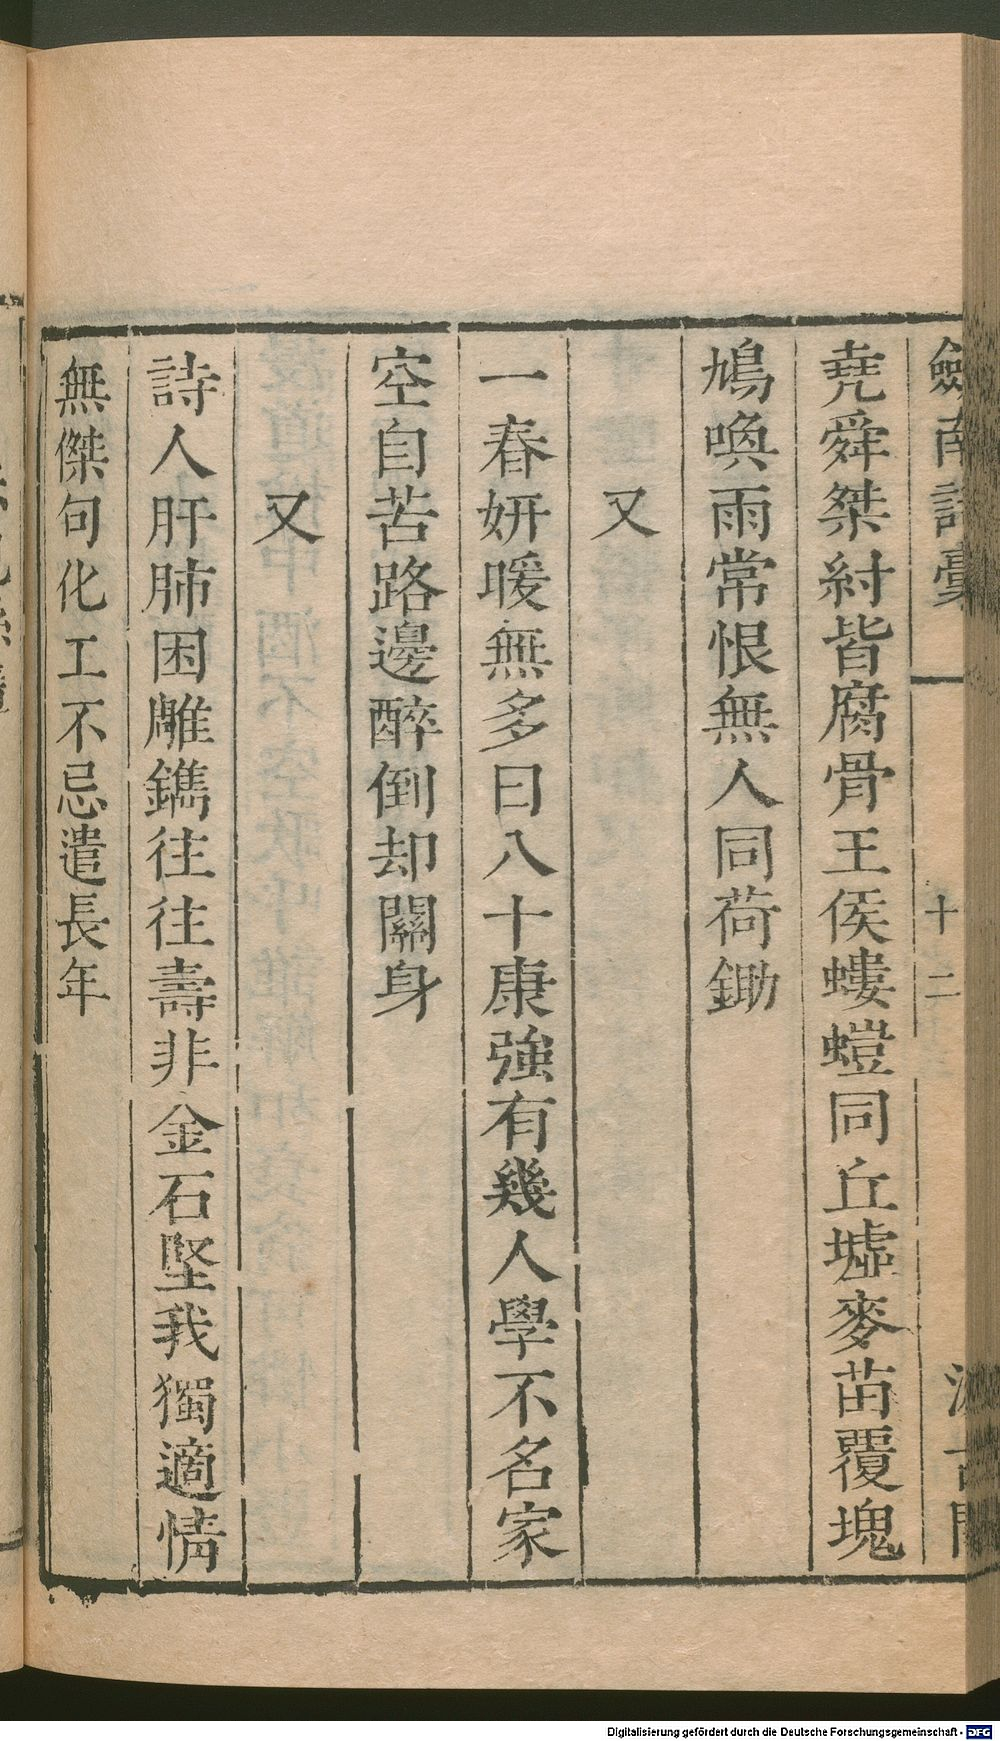 劍南詩稾
十二
汲古閣
堯舜桀紂皆腐骨王侯螻螘同丘墟麥苗覆塊
鳩喚雨常恨無人同荷鋤
又
一春妍暖無多日八十康強有幾人學不名家
空自苦路邊醉倒却關身
又
詩人肝肺困雕鐫往往壽非金石堅我獨適情
無傑句化工不忌遣長年
Digitalisierung gefördert durch die Deutsche Forschungsgemeinschaft - DFG